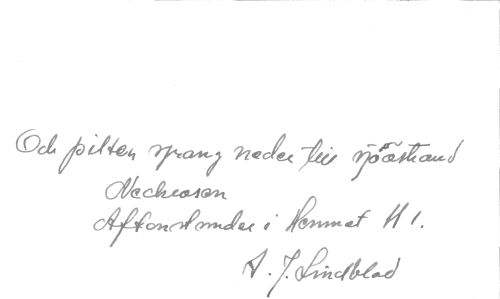 Och pilten sprang neder till sjöastrand
Neckrosen
Aftonstunder i Hemmet H 1.
A. J. Lindblad